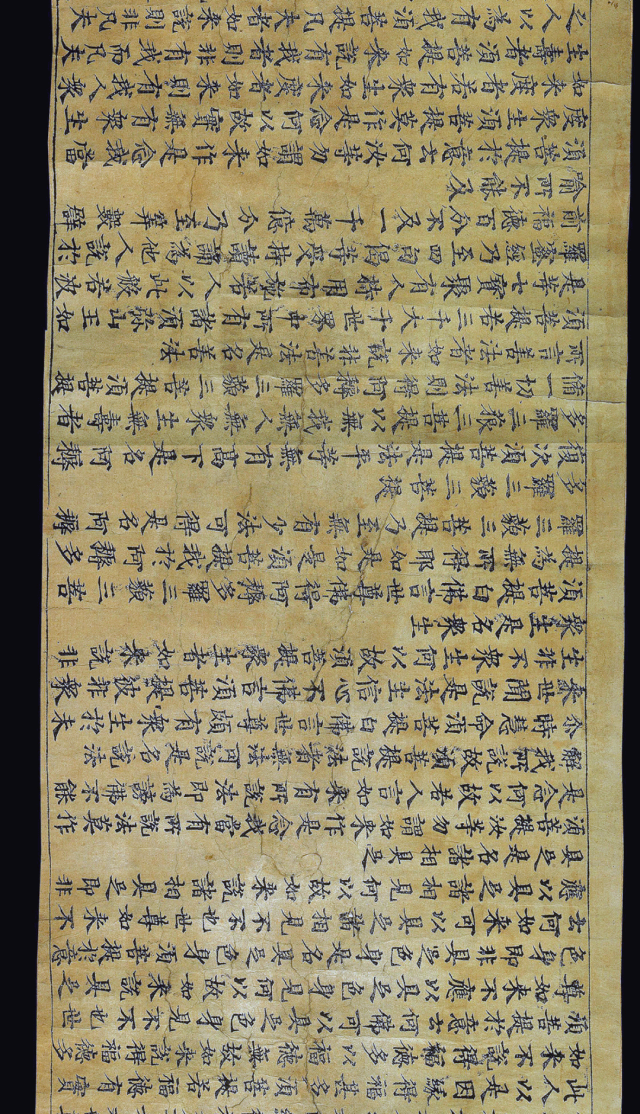 此人以是因緣得福甚多須菩提若福德有實
如來不說得福德多以福德無故如來說得福德多
須菩提於意云何佛可以具足色身見不不也世
尊如來不應以具足色身見何以故如來說具足
色身即非具足色身是名具足色身須菩提於意
云何如來可以具足諸相見不不也世尊如來不
應以具足諸相見何以故如來說諸相具足即非
具足是名諸相具足
須菩提汝等勿謂如來作是念我當有所說法莫作
是念何以故若人言如來有所說法即為謗佛不能
解我所說故須菩提說法者無法可說是名說法
尒時慧命須菩提白佛言世尊頗有眾生於未
來世聞說是法生信心不佛言須菩提彼非眾
生非不眾生何以故須菩提眾生者如來說非
眾生是名眾生
須菩提白佛言世尊佛得阿耨多羅三藐三菩
提為無所得耶如是如是須菩提我於阿耨多
羅三藐三菩提乃至無有少法可得是名阿耨
多羅三藐三菩提
復次須菩提是法平等無有高下是名阿耨
多羅三藐三菩提以無我無人無眾生無壽者
脩一切善法則得阿耨多羅三藐三菩提須菩提
所言善法者如來說非善法是名善法
須菩提若三千大千世界中所有諸須彌山王如
是等七寶聚有人持用布施若人以此般若波
羅蜜經乃至四句偈等受持讀誦為他人說於
前福德百分不及一千萬億分乃至筭數譬
喻所不能及
須菩提於意云何汝等勿謂如來作是念我當
度眾生須菩提莫作是念何以故實無有眾生
如來度者若有眾生如來度者如來則有我人眾
生壽者須菩提如來說有我者則非有我而凡夫
之人以為有我須菩提凡夫者如來說則非凡夫